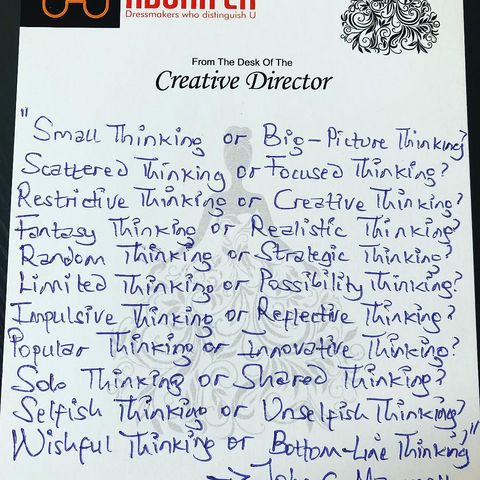 Dressmakers who distinguish U
From The Desk Of The
Creative Director
"Small Thinking or Big-Picture Thinking?
Scattered Thinking or Focused Thinking?
Restrictive Thinking or Creative Thinking?
Fantasy Thinking or Realistic Thinking?
Random Thinking or Strategic Thinking?
Limited Thinking or Possibility Thinking?
Impulsive Thinking or Reflective Thinking?
Popular Thinking or Innovative Thinking?
Solo Thinking or Shared Thinking?
Selfish Thinking or Unselfish Thinking?
Wishful Thinking or Bottom-Line Thinking"
John C.